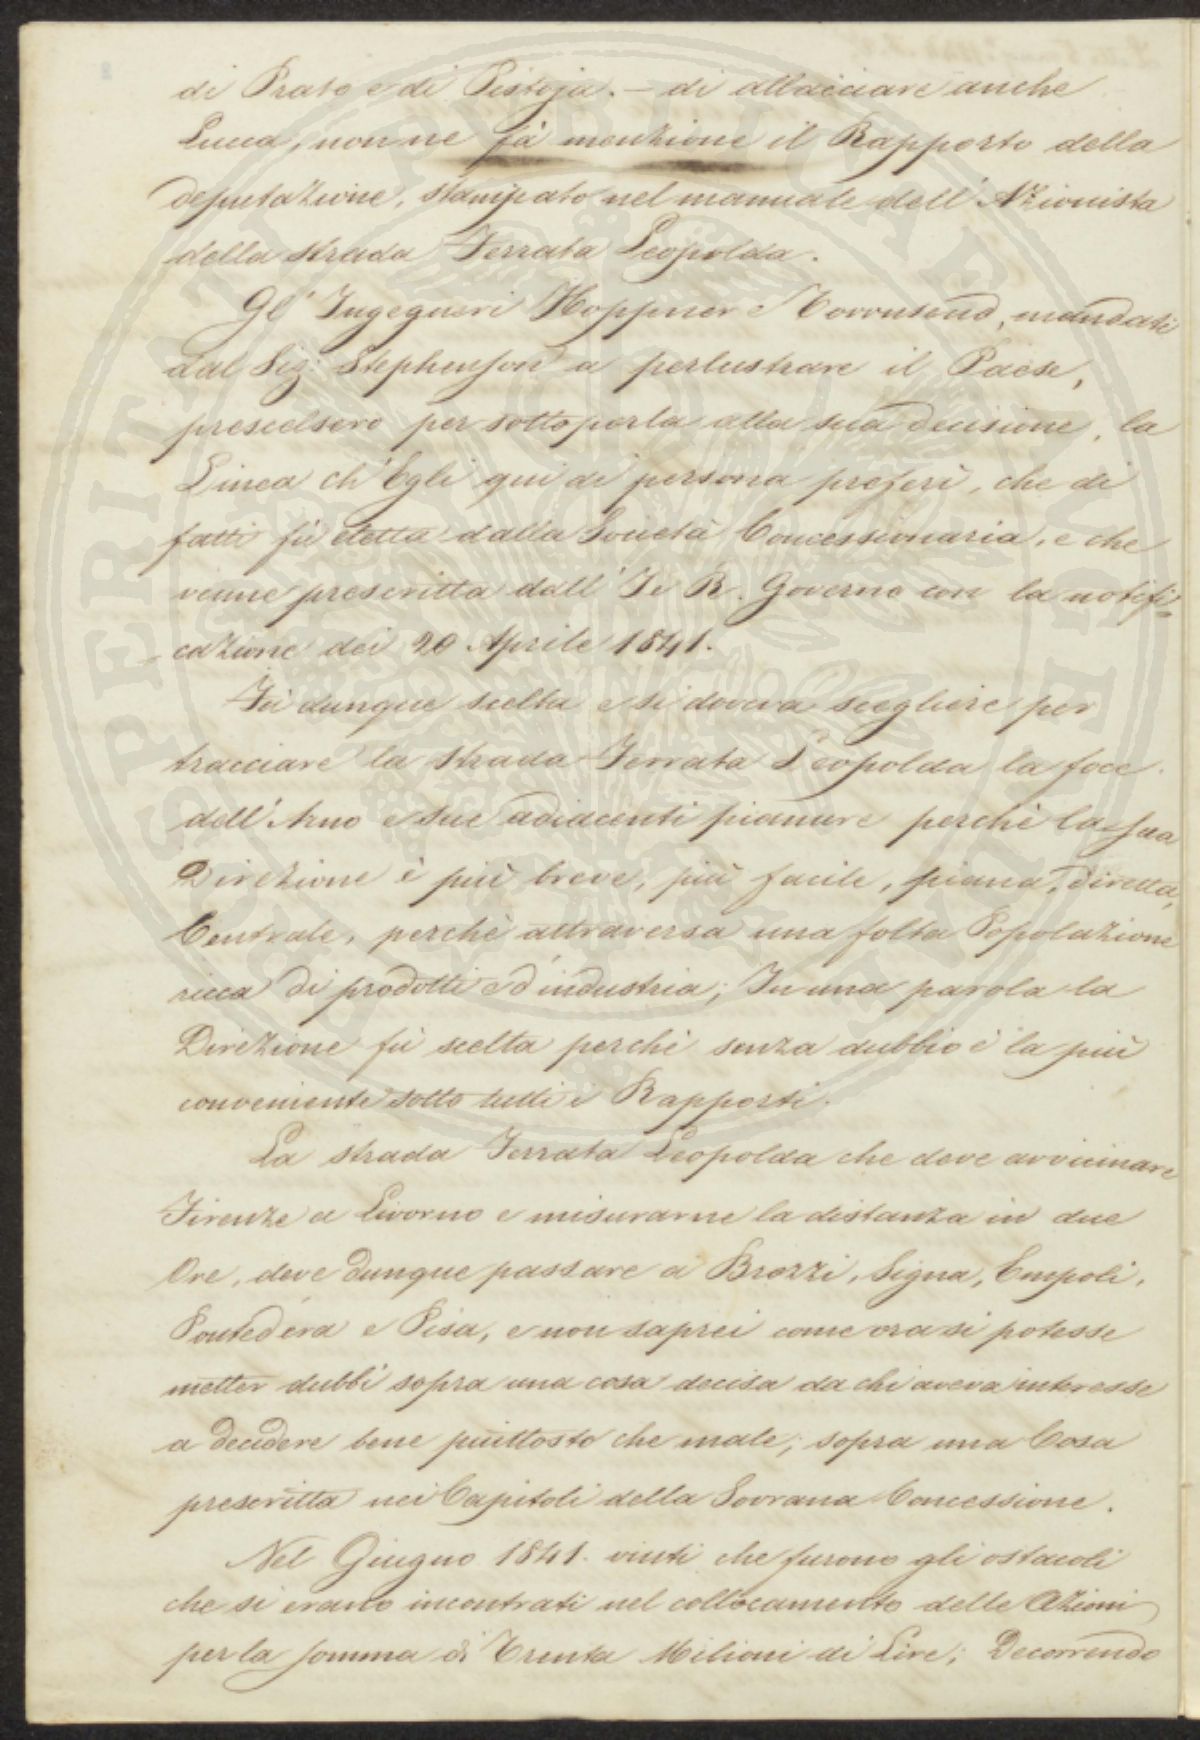 di Prato e di Pistoja. — di allacciare anche
Lucca, non ne fà menzione il Rapporto della
deputazione, stampato nel manuale dell'Azionista
della strada Ferrata Leopolda.
Gl'Ingegneri Hoppner e Townsend, mandati
dal Sig: Stephenson a perlustrare il Paese,
prescelsero per sottoporla alla sua decisione, la
Linea ch'Egli qui di persona preferì, che di
fatti fù eletta dalla Società Concessionaria, e che
venne prescritta dall'I. e R. Governo con la notifi=
=cazione dei 20 Aprile 1841.
Fù dunque scelta e si doveva scegliere per
tracciare la strada Ferrata Leopolda la foce
dell'Arno e sue adiacenti pianure perchè la sua
Direzione è più breve, più facile, piana, diretta,
Centrale, perchè attraversa una folta Popolazione
ricca di prodotti e d'industria; In una parola la
Direzione fù scelta perchè senza dubbio è la più
conveniente sotto tutti i Rapporti.
La strada Ferrata Leopolda che deve avvicinare
Firenze a Livorno e misurarne la distanza in due
Ore, deve dunque passare a Brozzi, Signa, Empoli,
Pontedera e Pisa, e non saprei come ora si potesse
metter dubbi sopra una cosa decisa da chi aveva interesse
a decidere bene piuttosto che male; sopra una Cosa
prescritta nei Capitoli della Sovrana Concessione.
Nel Giugno 1841. vinti che furono gli ostacoli
che si erano incontrati nel collocamento delle Azioni
per la somma di Trenta Milioni di Lire; Decorrendo